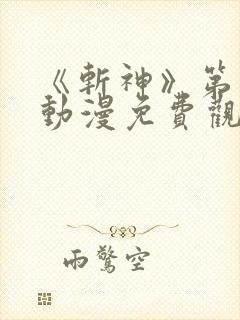 《斬神》第
動漫免費觀
雨驚空